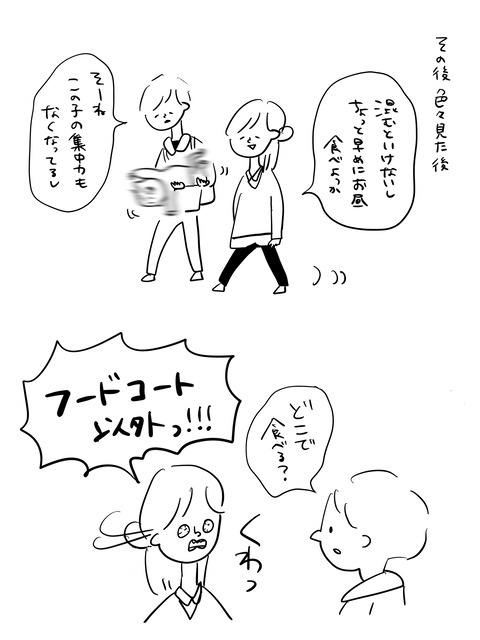 その後 色々見た後
混むといけないし
ちょっと早めにお昼
食べようか
そーね
この子の集中力も
なくなってるし
どこで
食べる?
フードコート
以外っ!!!
くわっ